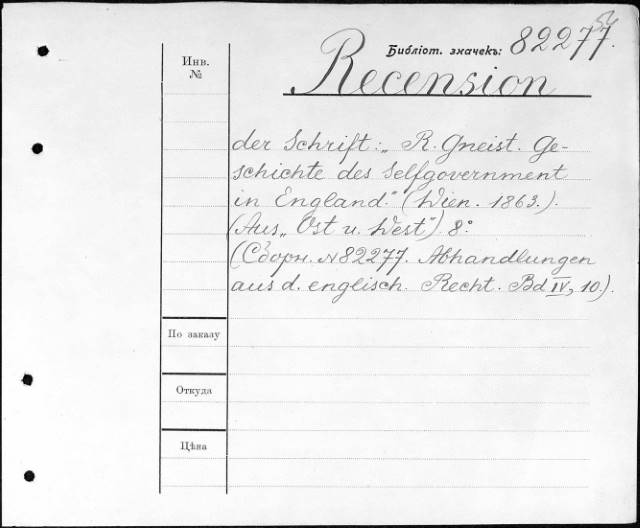 Библіот. значекъ: 82277.
Инв.
№
Recension
der Schrift: „R. Gneist. Ge-
schichte des Selfgovernment
in England." (Wien. 1863.).
(Aus „Ost u. West") 8°
(Сборн. № 82277. Abhandlungen
aus d. englisch. Recht. Bd IV, 10.).
По заказу
Откуда
Цѣна